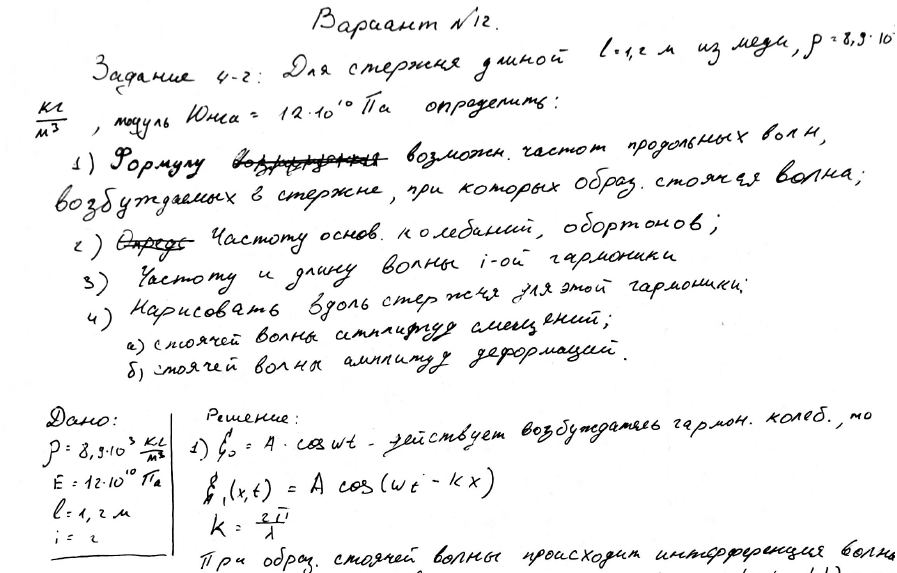 Вариант №12.
Задание 4-2: Для стержня длиной l=1,2 м из меди, ρ=8,9·10
кг/м³, модуль Юнга = 12·10¹⁰ Па определить:
1) Формулу возможн. частот продольных волн,
возбуждаемых в стержне, при которых образ. стоячая волна;
2) Частоту основ. колебаний, обортонов;
3) Частоту и длину волны i-ой гармоники
4) Нарисовать вдоль стержня для этой гармоники:
а) стоячей волны амплитуд смещений;
б) стоячей волны амплитуд деформаций.
Дано:
ρ=8,9·10³ кг/м³
E=12·10¹⁰ Па
l=1,2 м
i=2
Решение:
1) ξ₀ = A · cos ωt - действует возбуждатель гармон. колеб., то
ξ₁(x,t) = A cos(ωt - kx)
k = 2π/λ
При образ. стоячей волны происходит интерференция волны